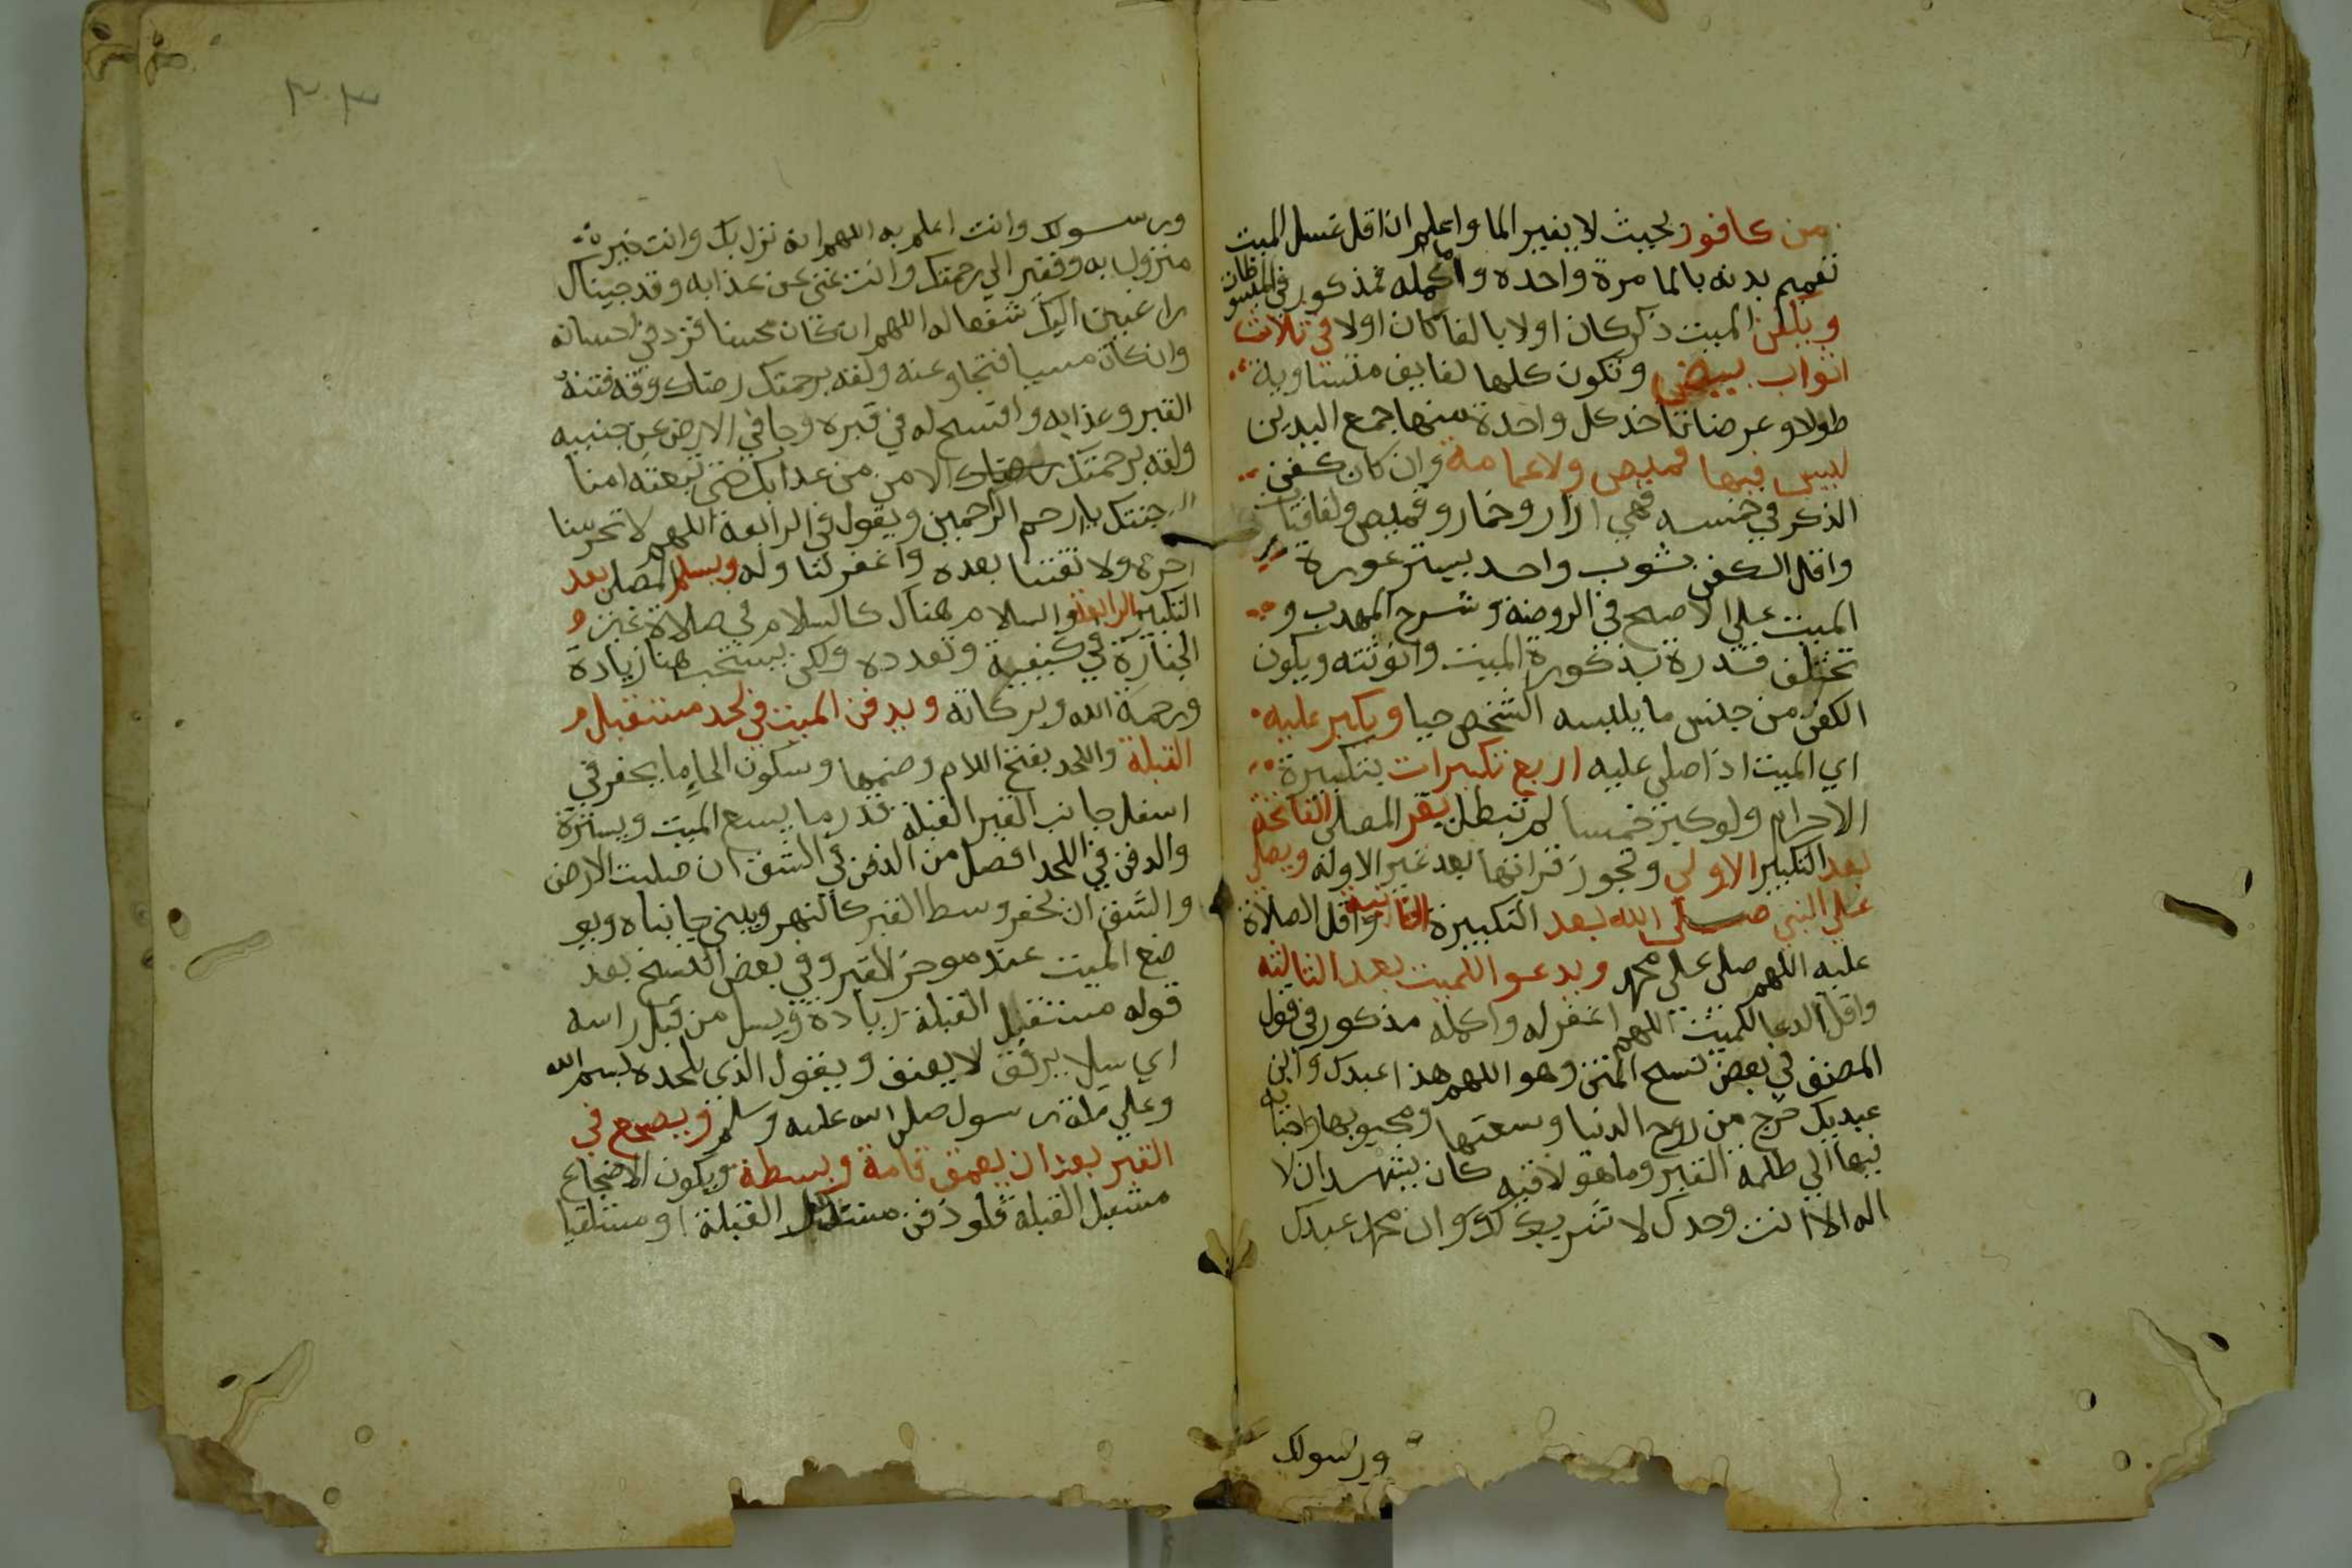 من كافور بحيث لا يغير الما واعلم ان اقل غسل الميت
تعميم بدنه بالما مرة واحده واكمله فمذكور في المبسوطات
ويكفن الميت ذكر كان اولا بالغا كان اولا في ثلاث
اثواب بيض وتكون كلها لفايف متساوية
طولا وعرضا تاخذ كل واحدة منها جمع البدين
ليس فيها قميص ولا عمامة وان كان كفن
الذكر في خمسه فهي ازار وخمار وقميص ولفافتان
واقل الكفن ثوب واحد يستر عورة
الميت علي الاصح في الروضة وشرح المهدب و
تختلف قدرة بذكورة الميت وانوثته ويكون
الكفن من جنس ما يلبسه الشخص حيا ويكبر عليه
اي الميت اذا صلي عليه اربع تكبيرات بتكبيرة
الاحرام ولو كبر خمسا لم تبطل يقر المصلي الفاتحة
بعد التكبير الاولي وتجوز قراتها بعد غير الاوله ويصلي
علي النبي صلي الله بعد التكبيرة الثانية واقل الصلاة
عليه اللهم صلي علي محمد ويدعو اللميت بعد الثالثه
واقل الدعا للميت اللهم اغفر له واكمله مذكور في قول
المصنف في بعض نسح المتن وهو اللهم هذا عبدك وابن
عبديك خرج من روح الدنيا وسعتها ومحبوبها واحبايه
فيها الي ظلمة القبر وما هو لاقيه كان يشهد ان لا
اله الا انت وحدك لا شريك لك وان محمد عبدك
ورسولك
٣٠٣
ورسولك وانت اعلم به اللهم انه نزل بك وانت خير
منزول به وفقير الي رحمتك وانت غني عن عذابه وقد جيناك
راغبين اليك شفعا له اللهم ان كان محسنا فزد في احسانه
وان كان مسيا فتجاوز عنه ولقه برحمتك رضاك وقه فتنة
القبر وعذابه وافسح له في قبره وجافي الارض عن جنبيه
ولقه برحمتك الامن من عدابك حتي تبعثه امنا
الي جنتك يا ارحم الراحمين ويقول في الرابعة اللهم لا تحرمنا
اجره ولا تفتنا بعده واغفر لنا وله ويسلم المصلي بعد
التكبير الرابعة والسلام هنا كالسلام في صلاة غير
الجنازة في كيفية وتعدده ولكن يستحب هنا زيادة
ورحمة الله وبركاته ويدفن الميت في لحد مستقبل
القبلة واللحد بفتح اللام وضمها وسكون الحاء ما يحفر في
اسفل جانب القبر القبلة قدر ما يسع الميت ويستره
والدفن في اللحد افضل من الدفن في الشق ان صلبت الارض
والشق ان يحفر وسط القبر كالنهر ويبني جانباه ويو
ضع الميت عند موخر القبر وفي بعض النسخ بعد
قوله مستقبل القبلة زيادة ويسل من قبل راسه
اي سلا برفق لا يعنف ويقول الذي يلحده بسم الله
وعلي ملة رسول صلي الله عليه وسلم ويضجع في
القبر بعد ان يعمق قامة وبسطة ويكون الاضجاع
مستقبل القبلة فلو دفن مستدبر القبلة او مستلقيا